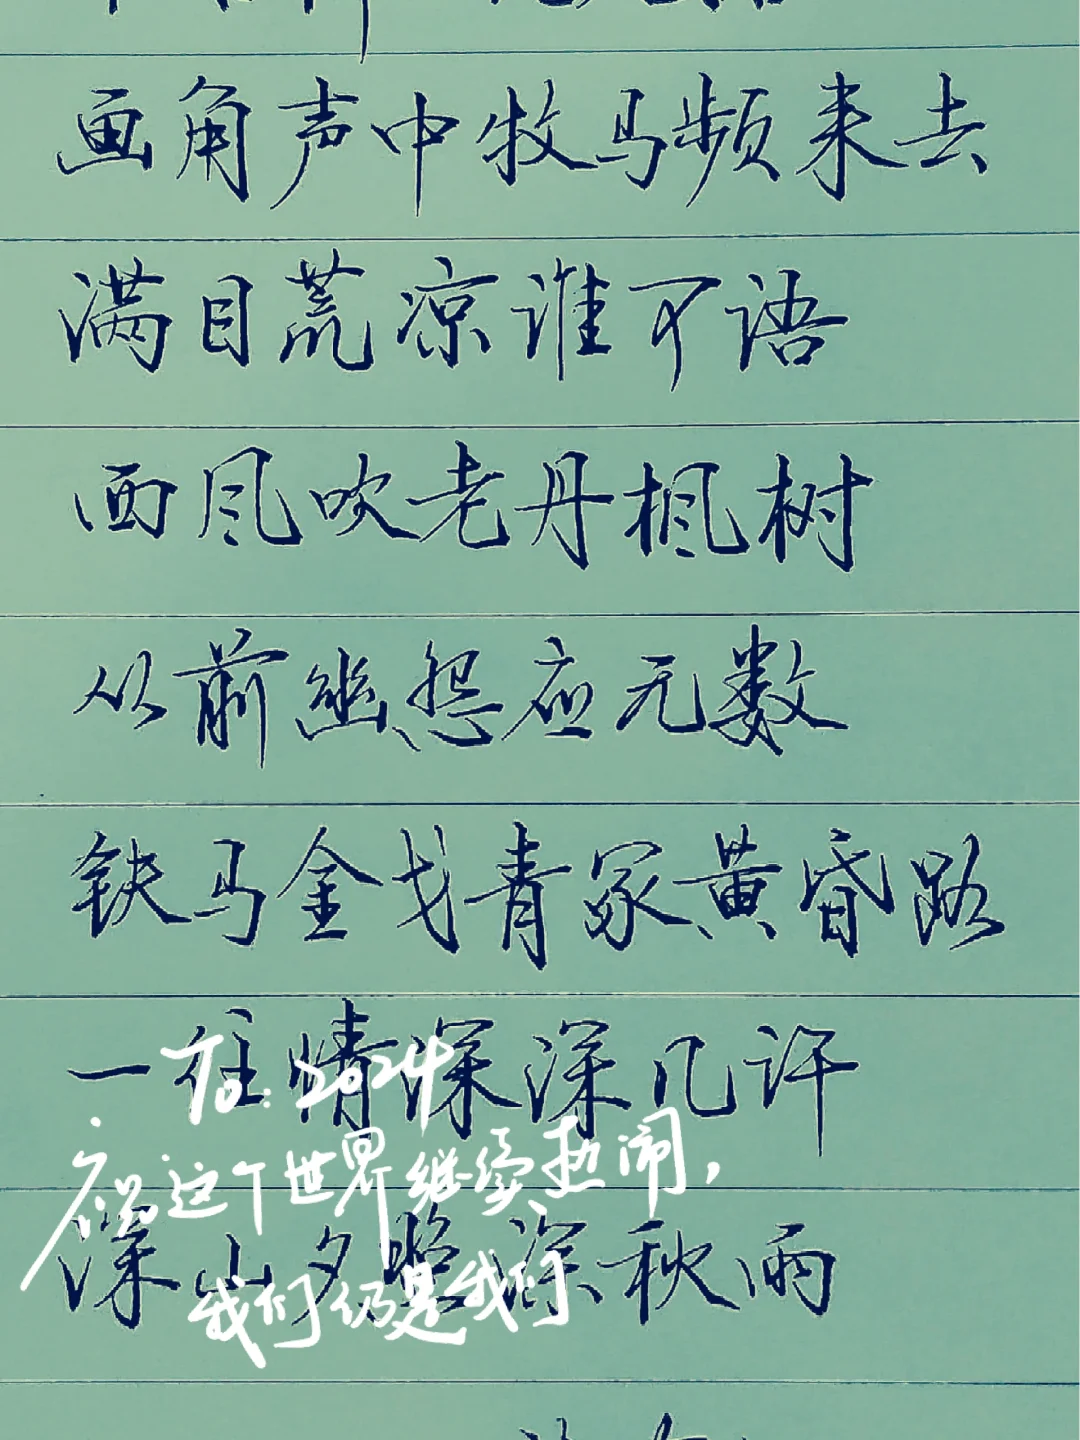 画角声中牧马频来去
满目荒凉谁可语
西风吹老丹枫树
从前幽怨应无数
铁马金戈青冢黄昏路
一往情深深几许
To: 2024
祝这个世界继续热闹,
深山夕照深秋雨
我们仍是我们